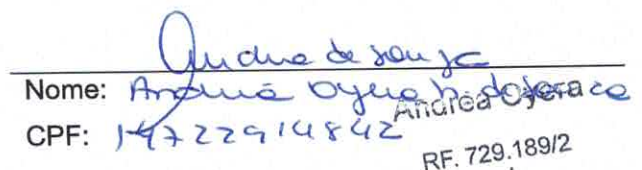 Andrea de Souza
Nome: Andrea Oyera
Andrea Oyera
CPF: 14722914842
RF. 729.189/2